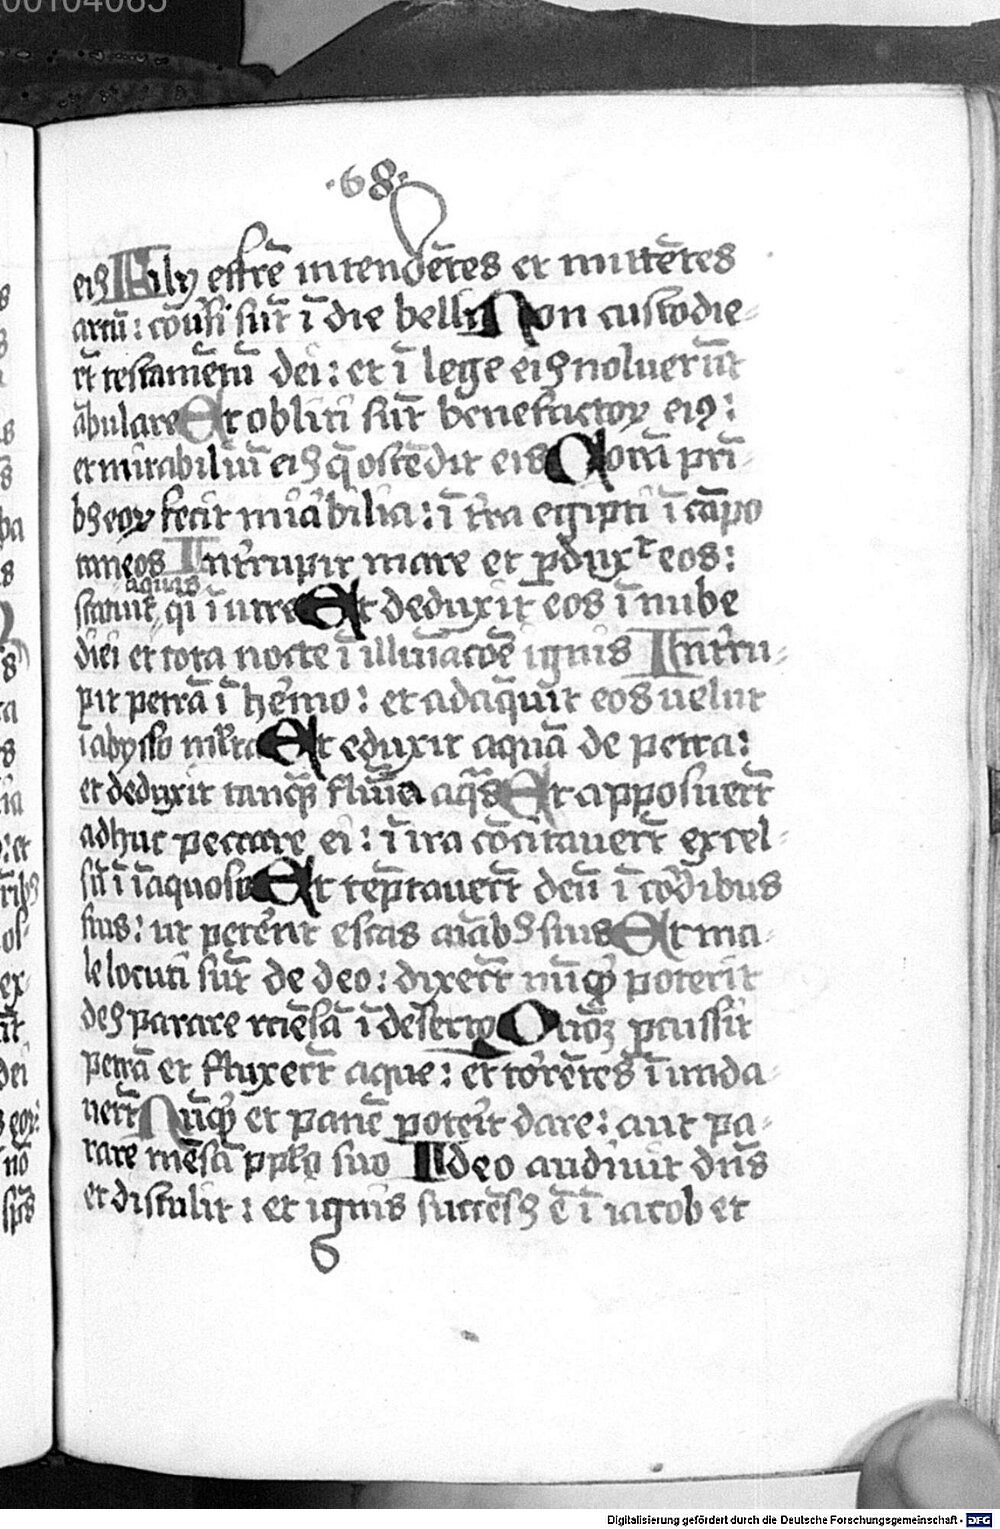 00104065
·68·
eiꝰ Filij effrē intendētes et mittētes
arcū: cōuͥsi sūt ī die belli Non custodie-
rt̄ testamētū dei: et ī lege eiꝰ noluerūt
ābulare Et obliti sūt benefactoꝝ eiꝰ:
et mirabiliū eiꝰ q̄ ostēdit eis Corā pri-
bꝰ eoꝝ fecit miͣabilia: ī t̄ra egipti ī cāpo
taneos Int̄rupit mare et ꝑduxͭ eos:
statuit aquas qͥ ī utre Et deduxit eos ī nube
diei et tota nocte ī illūiacōē ignis Int̄ru-
pit petrā ī hēmo: et adaquīt eos uelut
ī abysso ml̄ta Et eduxit aquā de petra:
et deduxit tanqͣꝫ flūīa aqͣs Et apposuert̄
adhuc peccare ei: ī ira cōcitauert̄ excel-
sū ī īaquoso Et tēptauert̄ deū ī cordibus
suis: ut peterēt escas aīabꝰ suis Et ma-
le locuti sūt de deo: dixert̄ nūqͥd poterit
deꝰ parare mēsā ī deserto Quōꝫ ꝑcussit
petrā et fluxert̄ aque: et torētes īunda-
uert̄ Nūqͥd et panē poterit dare: aut pa-
rare mēsā pp̄lo suo Ideo audiuit dn̄s
et distulit: et ignis succēsꝰ ē ī iacob et
Digitalisierung gefördert durch die Deutsche Forschungsgemeinschaft - DFG